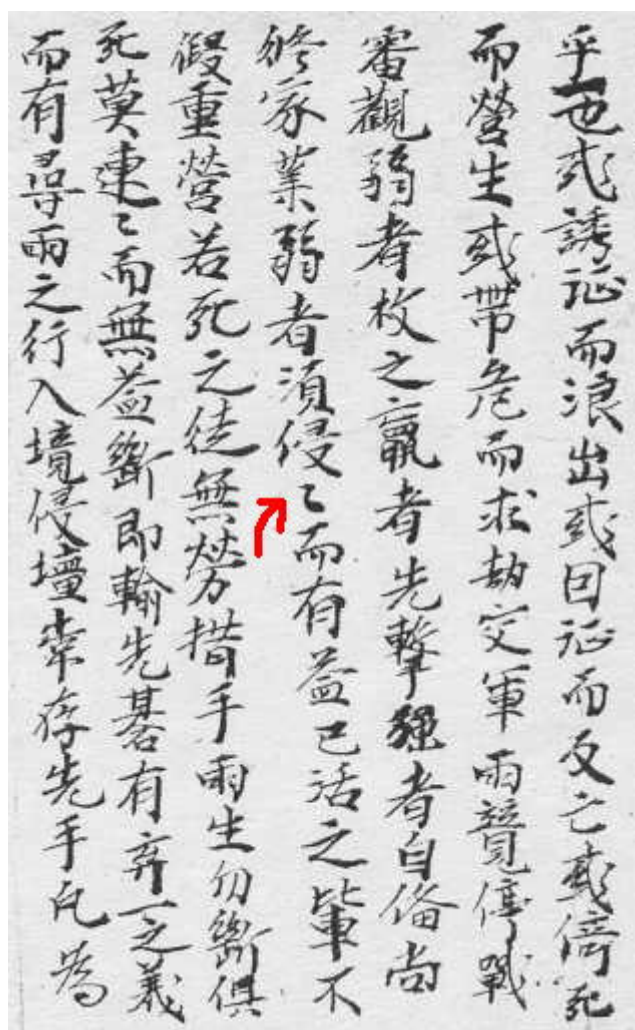 乎也或誘征而浪出或因征而反亡或倚死
而營生或帶危而求劫交軍兩競停戰
審觀弱者枚之羸者先擊強者自俻尚
修家業弱者須侵〻而有益已活之輩不
假重營若死之徒無勞措手兩生勿斷俱
死莫連〻而無益斷即輸先碁有弃一之義
而有尋兩之行入境侵壃常存先手凡為